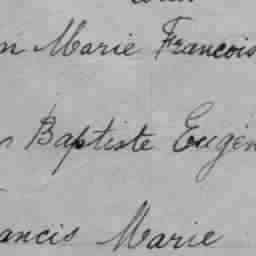 n Marie Francois
Baptiste Eugén
ancis Marie